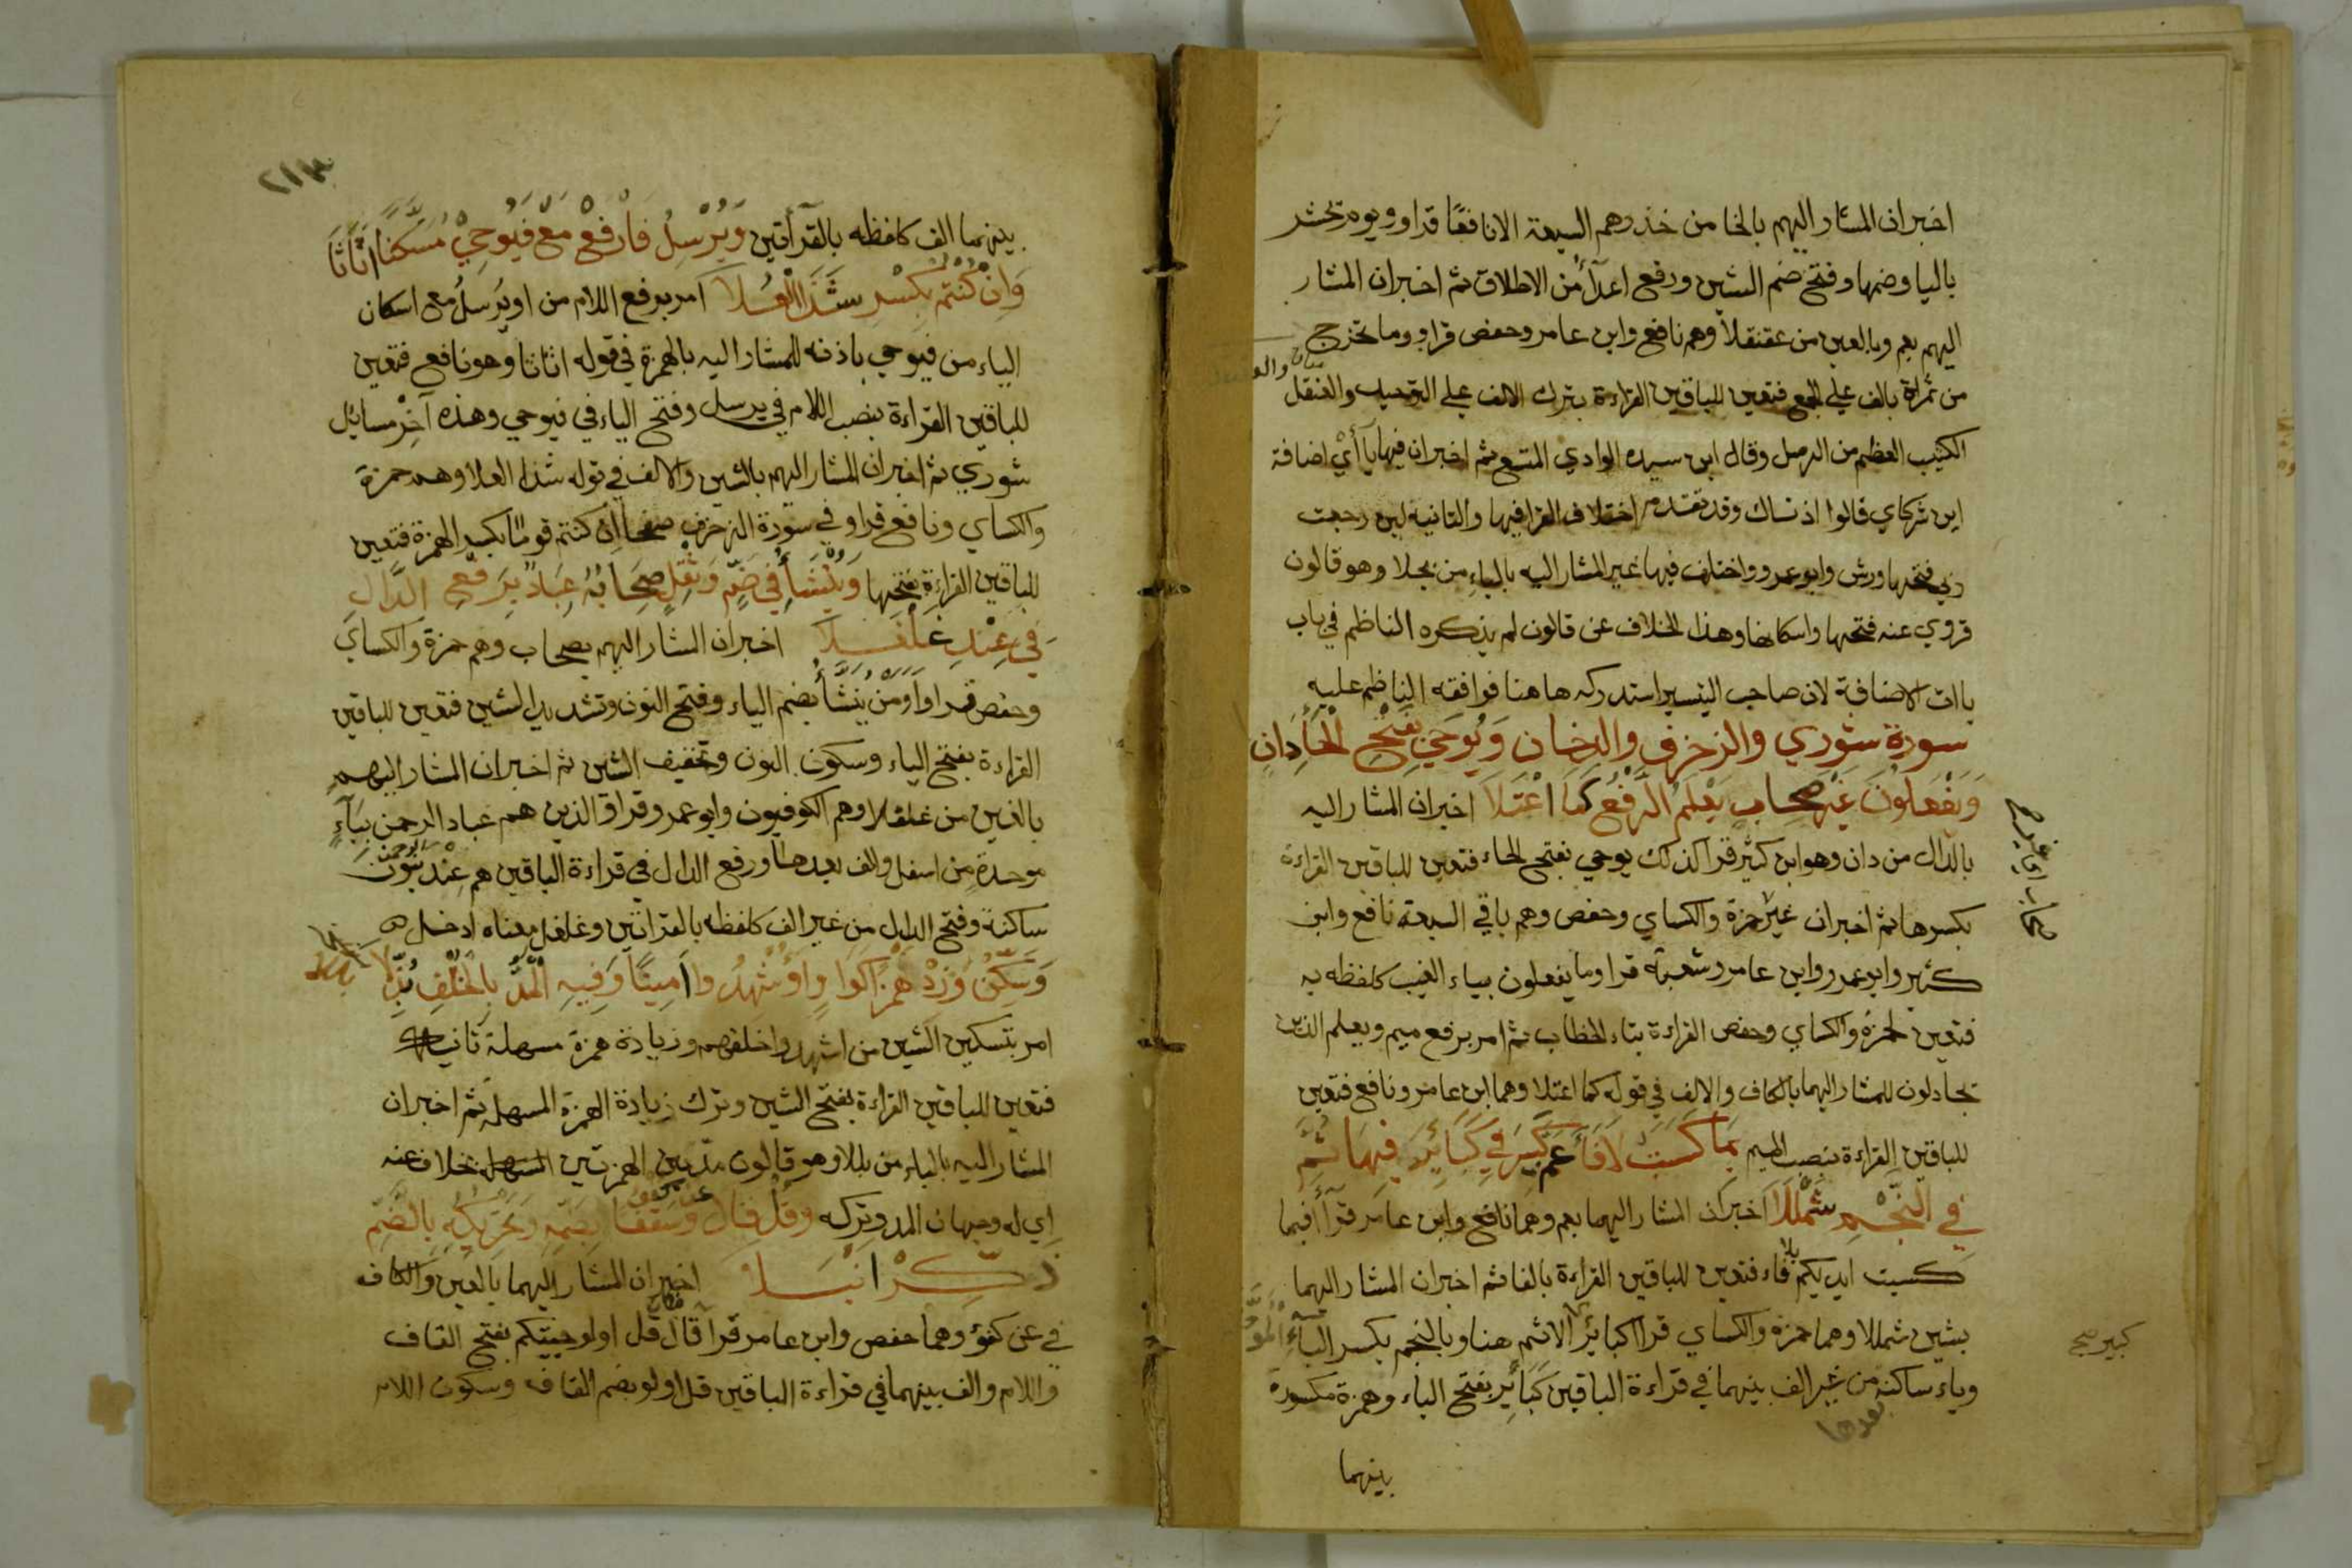 اخبران المشار اليهم بالخا من خذ وهم السبعة الا نافعا قراو ويوم يحشر
باليا وضمها وفتح ضم الشين ورفع اعدآ من الاطلاق ثم اخبران المشار
اليهم بعم وبالعين من عقنقلا وهم نافع وابن عامر وحفص قراو وما تخرج
من ثمراة بالف علي الجمع فتعين للباقين القراءة بترك الالف علي التوحيد والعنقل
الكثيب العظيم من الرمل وقال ابن سيده الوادي المتسع ثم اخبران فيها يآأي اضافة
اين شركاي قالوا اذناك وقد تقدم اختلاف القرا فيها والثانية لين رجعت
ربي فتحها ورش وابو عمرو واختلف فيها غير المشار اليه بالباء من بجلا وهو قالون
فروي عنه فتحها واسكانها وهذا الخلاف عن قالون لم يذكره الناظم في باب
ياات الاضافة لان صاحب التيسير استدركه هاهنا فوافقه الناظم عليه
سورة شوري والزخرف والدخان وَيُوحَى بِفَتْحِ الْحَاْءِ دَانٍ
وَيَفْعَلُونَ غَيْرُ صِحَابٍ يَعْلَمَ الرَّفْعُ كَمَا اعْتَلَا اخبران المشار اليه
بالدال من دان وهو ابن كثير قرا كذلك يوحي بفتح الحاء فتعين للباقين القراءة
بكسرها ثم اخبران غير حمزة والكساي وحفص وهم باقي السبعة نافع وابن
كثير وابو عمرو وابن عامر وشعبة قراو ما يفعلون بياء الغيب كلفظه به
فتعين لحمزة والكساي وحفص القراءة بتاء الخطاب ثم امر برفع ميم ويعلم الذين
يجادلون للمشار اليهما بالكاف والالف في قوله كما اعتلا وهما ابن عامر ونافع فتعين
للباقين القراءة بنصب الميم بِمَا كَسَبَتْ لَا فَاءَ عَمَّ كَبِيرَ فِي كَبَائِرَ فِيهَا ثُمَّ
فِي النَّجْمِ شَمْلَلَا اخبران المشار اليهما بعم وهما نافع وابن عامر قرآ فبما
كسبت ايديكم بلا فاء فتعين للباقين القراءة بالفا ثم اخبران المشار اليهما
بشين شمللا وهما حمزة والكساي قرا كبائر الاثم هنا وبالنجم بكسر الباء
وياء ساكنة من غير الف بينهما في قراءة الباقين كَبَائِر بفتح الباء وهمزة مكسورة
بعدها
بينهما
كبير صح
٢١٣
بينهما الف كلفظه بالقرآءتين وَيُرْسِلُ فَارْفَعْ مَعْ فَيُوحِيْ مُسَكَّنًا اتَانَا
وَانْ كُنْتُمُ بِكَسْرٍ شَذَا الْعُلَا امر برفع اللام من او يرسل مع اسكان
الياء من فيوحي باذنه للمشار اليه بالهمزة في قوله اتانا وهو نافع فتعين
للباقين القراءة بنصب اللام في يرسل وفتح الياء في فيوحي وهذه آخر مسايل
شوري ثم اخبران المشار اليهم بالشين والالف في قوله شذا العلا وهم حمزة
والكساي ونافع قراو في سورة الزخرف صفحا ان كنتم قوما بكسر الهمزة فتعين
للباقين القراءة بفتحها وَيُنَشَّأُ فِي ضَمٍّ وَثِقْلٍ صِحَابُهُ عِبَادُ بِرَفْعِ الدَّالِ
فِي عِنْدِ غَلْغَلَا اخبران المشار اليهم بصحاب وهم حمزة والكساي
وحفص قراو اَوَمَنْ يُنَشَّأُ بضم الياء وفتح النون وتشديد الشين فتعين للباقين
القراءة بفتح الياء وسكون النون وتخفيف الشين ثم اخبران المشار اليهم
بالغين من غلغلا وهم الكوفيون وابو عمرو قراو الذين هم عباد الرحمن بباء
موحدة من اسفل والف بعدها ورفع الدال في قراءة الباقين هم عند الرحمن بنون
ساكنة وفتح الدال من غير الف كلفظه بالقرائتين وغلغل معناه ادخل
وَسَكِّنْ وَزِدْ هَمْزًا كَوَاوٍ اَؤُشْهِدُوا اَمِينًا وَفِيهِ الْمَدُّ بِالْخُلْفِ بَلَّلَا
امر بتسكين الشين من اشهدوا خلقهم وزيادة همزة مسهلة ثانية
فتعين للباقين القراءة بفتح الشين وترك زيادة الهمزة المسهلة ثم اخبران
المشار اليه بالباء من بللا وهو قالون مد بين الهمزتين بخلاف عنه
اي له وجهان المد وتركه وَقُلْ قَالَ عَنْ كُفْؤٍ وَسَقْفًا بِضَمِّهِ وَتَحْرِيكِهِ بِالضَّمِّ
ذَكَّرَ انْبَلَا اخبران المشار اليهما بالعين والكاف
في عن كفؤ وهما حفص وابن عامر قرآ قال مكان قل اولو جيتكم بفتح القاف
واللام والف بينهما في قراءة الباقين قل اولو بضم القاف وسكون اللام